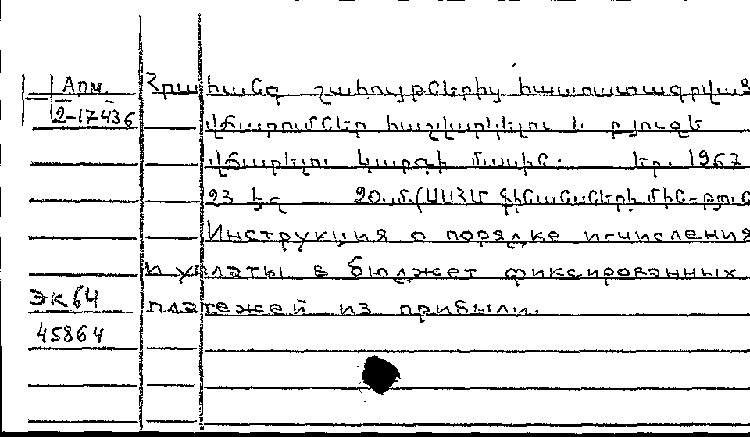 Арм.
2-17436
Հրահանգ շահույթներից հաստատագրված
վճարումներ հաշվարկելու և բյուջե
վճարելու կարգի մասին։ Եր. 1967
23 էջ 20 սմ. (ՍՍՀՄ ֆինանսների մին-թյուն
Инструкция о порядке исчисления
и уплаты в бюджет фиксированных
платежей из прибыли.
ЭК64
45864